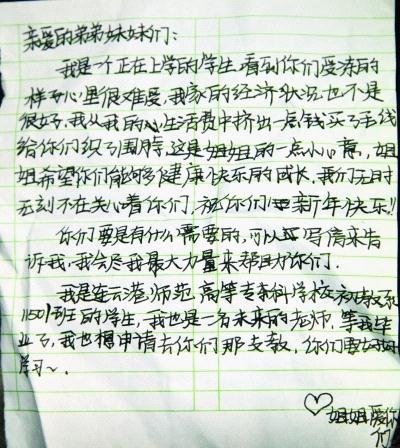 亲爱的弟弟妹妹们:
我是一个正在上学的学生,看到你们受冻的
样子心里很难受,我家的经济状况也不是
很好,我从我的生活费中挤出一点钱买了毛线
给你们织了围脖,这是姐姐的一点小心意,姐
姐希望你们能够健康快乐的成长,我们无时
无刻不在关心着你们,祝你们新年快乐!!
你们要是有什么需要的,可以写信来告
诉我,我会尽我最大力量来帮助你们.
我是连云港师范高等专科学校初教系
11501班的学生,我也是一名未来的老师,等我毕
业了,我也想申请去你们那支教,你们要好好
学习~.
♡姐姐爱你
们